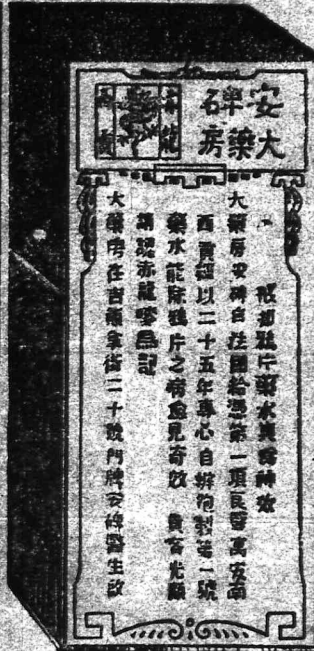 安碑
大藥房
赤龍
戒却鴉片藥水真奇神效
大藥房安碑自法國給憑第一項良醫寓安南
西貢經以二十五年專心自辦泡製第一號
藥水能除鴉片之病愈見奇效 貴客光顧
請認赤龍嘜為記
大藥房在吉街二十號門牌安碑醫生啟